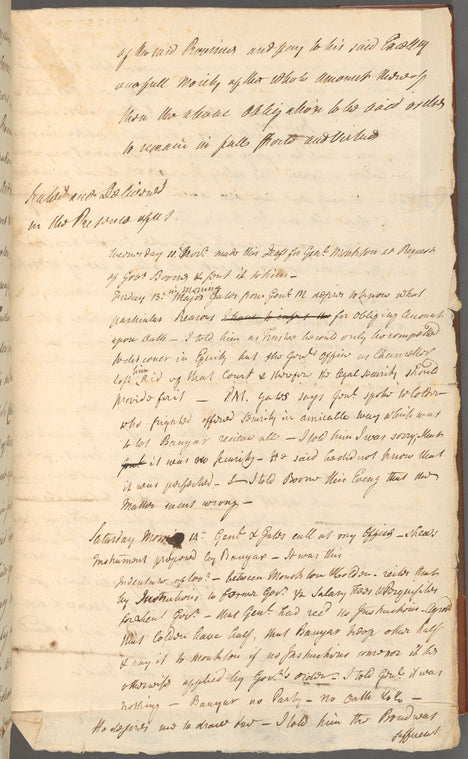 of the said Province and pay to his said Excellcy
one full Moiety of the whole amount thereof
then the above Obligation to be void or else
to remain in full Force and Virtue
Sealed and Delivered
in the Presence of us.
Wednesday 11 Novr. made this Draft for Genl. Monckton at Request
of Govr. Boone & sent it to him –
Friday 13. in Morning Major Gates from Genl. M. desires to know what
particular Reasons I have to insist for obliging Accounts
upon Oath – I told him as Trustee he could only be compelled
to discover in Equity but the Govrs. Office as Chancellor
left him rid of that Court & therefore the legal security should
provide for it – P.M. Gates says Genl. spoke to Colden
who frighted offered security in amicable way which was
to let Banyar receive all – I told him I was sorry that
it was no security – He said he did not know that
it was perfected – & I told Boone this Eveng that the
Matter went wrong –
Saturday Morning 14. Genl. & Gates call at my Office – shew
Instrument proposed by Banyar – It was this
Indenture – between Monckton & Colden – recites that
by Instructions to former Govrs. ½ Salary Fees & Perquisites
for absent Govr. – that Genl. had recd. no Instructions – agreed
that Colden have half, that Banyar keep other half
& pay it to Monckton if no Instructions come or it be
otherwise applied by Govrs. order – I told Genl. it was
nothing – Banyar no Party – no Oath &c &c –
He desires me to draw one – I told him the Bond was
sufficient